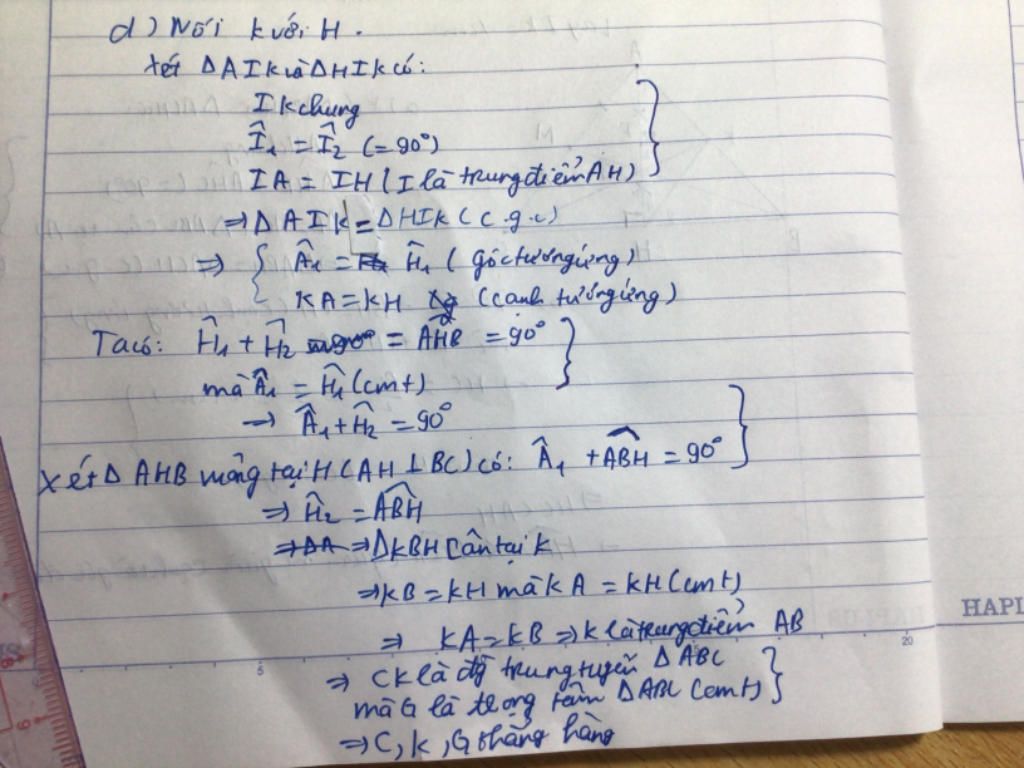 d) Nối K với H.
Xét ΔAIK và ΔHIK có:
IK chung
Î₁ = Î₂ (= 90°)
IA = IH (I là trung điểm AH)
⇒ ΔAIK = ΔHIK (c.g.c)
⇒ { Â₁ = Ĥ₁ (góc tương ứng)
KA = KH (cạnh tương ứng)
Ta có: Ĥ₁ + Ĥ₂ = AHB = 90°
mà Â₁ = Ĥ₁ (cmt)
⇒ Â₁ + Ĥ₂ = 90°
Xét Δ AHB vuông tại H (AH ⊥ BC) có: Â₁ + ABH = 90°
⇒ Ĥ₂ = ABH
⇒ ΔKBH cân tại K
⇒ KB = KH mà KA = KH (cmt)
⇒ KA = KB ⇒ K là trung điểm AB
⇒ CK là đg trung tuyến ΔABC
mà G là trọng tâm ΔABC (cmt)
⇒ C, K, G thẳng hàng
HAPI
5
20